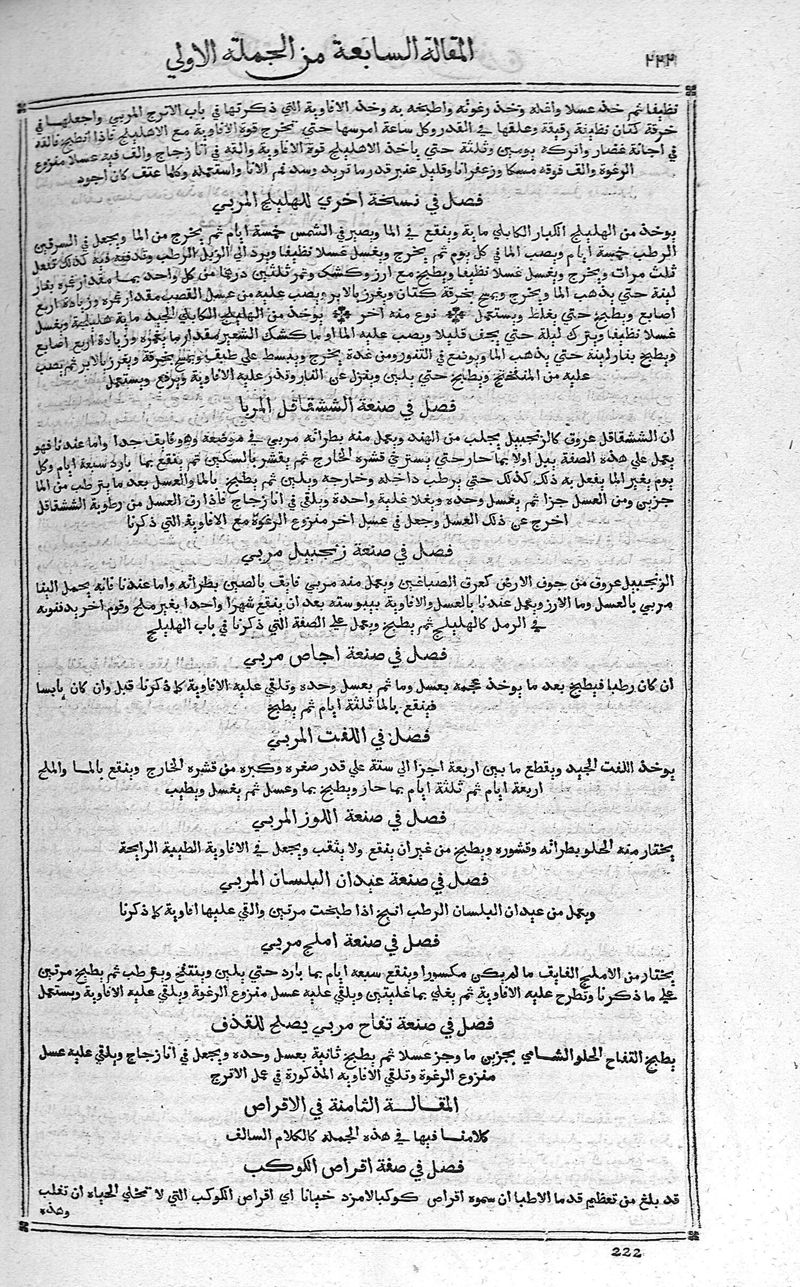 ٢٢٢
المقالة السابعة من الجملة الاولي
نظيفا ثم خذ عسلا واغله وخذ رغوته واطبخه به وخذ الافاوية التي ذكرتها في باب الاترج المربي واجعلها في
خرقة كتان نظيفة رقيقة وعلقها في القدر وكل ساعة امرسها حتي يخرج قوة الافاوية مع الاهليلج فاذا انطبخ فالقه
في اجانة غضار واتركه يومين وثلثة حتي ياخذ الاهليلج قوة الافاوية والقه في انا زجاج والف فيه عسلا منزوع
الرغوة والف فوقه مسكا وزعفرانا وقليل عنبر قدر ما تريد وسد فم الانا واستعمله وكلما عتف كان اجود
فصل في نسخة اخري للهليلج المربي
يوخذ من الهليلج الكبار الكابلي ماية وينقع في الما ويصير في الشمس خمسة ايام ثم يخرج من الما ويجعل في السرقين
الرطب خمسة ايام ويصب الما في كل يوم ثم يخرج ويغسل غسلا نظيفا ويرد الي الزبل الرطب وتدفنه فيه كذلك تفعل
ثلث مرات ويخرج ويغسل غسلا نظيفا ويطبخ مع ارز وكشك وتمر ثلثين درهما من كل واحد بما مقدار غمره بنار
لينة حتي يذهب الما ويخرج ويمسح بخرقة كتان ويغرز بالابر ويصب عليه من عسل القصب مقدار غمره وزيادة اربع
اصابع ويطبخ حتي يغلظ ويستعمل نوع منه اخر يوخذ من الهليلج الكابلي الجيد ماية هليلجة ويغسل
غسلا نظيفا ويترك ليلة حتي يجف قليلا ويصب عليه الما او ما كشك الشعير مقدار ما يغمره وزيادة اربع اصابع
ويطبخ بنار لينة حتي يذهب الما ويوضع في التنور ومن غدة يخرج ويبسط علي طبف ويمسح بخرقة ويغرز بالابر ثم يصب
عليه من ويطبخ حتي يلين وينزل عن النار وتذر عليه الافاوية ويرفع ويستعمل
فصل في صنعة الششقاقل المربا
ان الششقاقل عروق كالزنجبيل يجلب من الهند ويعمل منه بطرائه مربي في موضعه وهو فايف جدا واما عندنا فهو
يعمل علي هذه الصفة يبل اولا بما حار حتي يسترخي قشره الخارج ثم يقشر بالسكين ثم ينقع بما بارد سبعة ايام وكل
يوم يغير الما يفعل به ذلك كذلك حتي يرطب داخله وخارجه ويلين ثم يطبخ بالما والعسل بعد ما يترطب من الما
جزين ومن العسل جزا ثم يغسل وحده ويغلا غلية واحدة ويلقي في انا زجاج فاذا رق العسل من رطوبة الششقاقل
اخرج عن ذلك العسل وجعل في عسل اخر منزوع الرغوة مع الافاوية التي ذكرنا
فصل في صنعة زنجبيل مربي
الزنجبيل عروق من جوف الارض كعرق الصباغين ويعمل منه مربي فايف بالصين بطرائه واما عندنا فانه يحمل الينا
مربي بالعسل وما الارز ويعمل عندنا بالعسل والافاوية بيبوسته بعد ان ينقع شهرا واحدا بغير ملح وقوم اخر يدفنونه
في الرمل كالهليلج ثم يطبخ ويعمل علي الصفة التي ذكرنا في باب الهليلج
فصل في صنعة اجاص مربي
ان كان رطبا فيطبخ بعد ما يوخذ عجمه بعسل وما ثم بعسل وحده وتلقي عليه الافاوية كما ذكرنا قبل وان كان يابسا
فينقع بالما ثلثة ايام ثم يطبخ
فصل في اللفت المربي
يوخذ اللفت الجيد ويقطع ما بين اربعة اجزا الي ستة علي قدر صغره وكبره من قشره الخارج وينقع بالما والملح
اربعة ايام ثم ثلثة ايام بما حار ويطبخ بما وعسل ثم يغسل ويطيب
فصل في صنعة اللوز المربي
يختار منه الحلو بطرائه وقشوره ويطبخ من غير ان ينقع ولا ينقب ويجعل في الافاوية الطيبة الرايحة
فصل في صنعة عيدان البلسان المربي
ويعمل من عيدان البلسان الرطب انبج اذا طبخت مرتين والقي عليها افاوية كما ذكرنا
فصل في صنعة املج مربي
يختار من الاملج الفايف ما لم يكن مكسورا وينقع سبعة ايام بما بارد حتي يلين وينتفخ ويترطب ثم يطبخ مرتين
علي ما ذكرنا وتطرح عليه الافاوية ثم يغلي بما غليتين ويلقي عليه عسل منزوع الرغوة ويلقي عليه الافاوية ويستعمل
فصل في صنعة تفاح مربي يصلح للقذف
يطبخ التفاح الحلو الشامي بجزين ما وجز عسلا ثم يطبخ ثانية بعسل وحده ويجعل في انا زجاج ويلقي عليه عسل
منزوع الرغوة وتلقي الافاويه المذكورة في عمل الاترج
المقالة الثامنة في الاقراص
كلامنا فيها في هذه الجملة كالكلام السالف
فصل في صفة اقراص الكوكب
قد بلغ من تعظيم قدما الاطبا ان سموه اقراص كوكبا لامزد خيانا اي اقراص الكوكب التي لا تخلي الحياه ان تغلب
وهذه
222